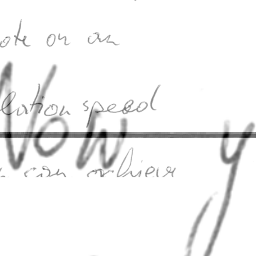 ote on an
lation speed
Now y
can achieve